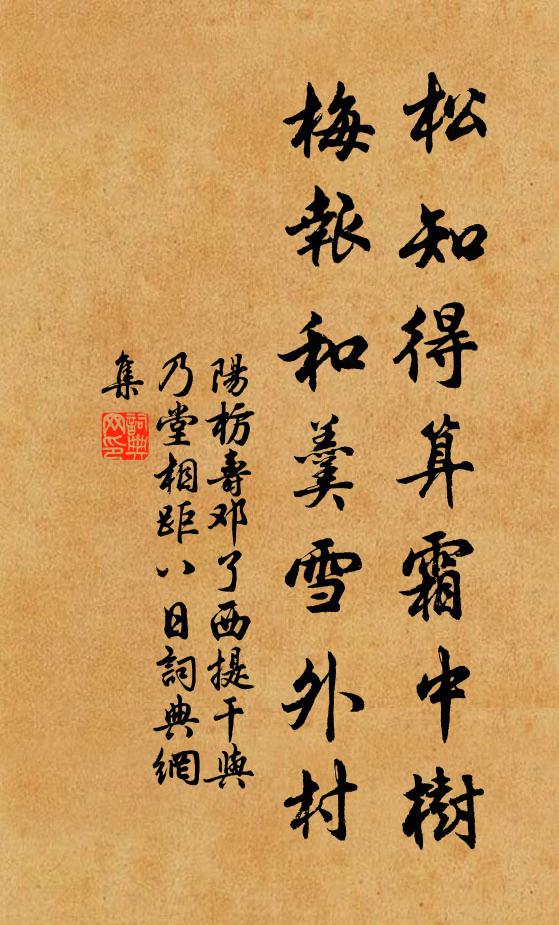 松知得算霜中樹
梅報和羹雪外村
陽枋壽邓了西提干與
乃堂相距八日詞典網
集
詞典
网印